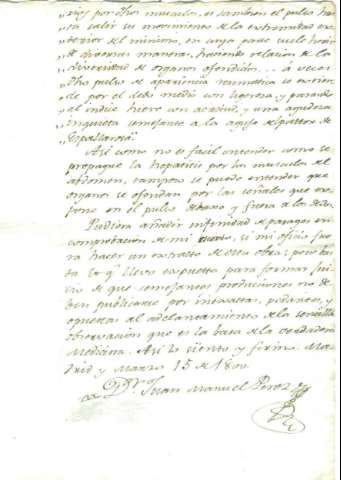 por dho musculo, o tambien el pulso ha-
ra salir su movimiento de la extremidad ex-
terior del
de diversas manera, haciendo relacion de la
diversidad de organos ofendidos... á veces
dho pulso de apariencia se extien-
de por el dedo medio con ligereza, y parado
al indice hiere con acritud, y una agudeza
inquieta semejante a la aguja de
Espallarosa.
Asi como no es facil entender como se
propague la hepatitis por los musculos del
abdomen, tampoco se puede entender que
organos se ofendan por las señales que ex-
pone en el pulso y fuera de los dedos.
Pudiera añadir infinidad de parages en
comprobacion de mi si mi oficio fue-
ra hacer un extracto de esta obra; pero bas-
ta lo q.e llevo expuesto para formar jui-
cio de que semejantes produciones no de-
ben publicarse por inexactas, pedantes, y
opuestas al adelantamiento de la sencilla
observacion que es la basa de la verdadera
Medicina. Asi lo siento y firmo. Ma-
drid y Marzo 15 de 1800.
Juan Manuel Perez